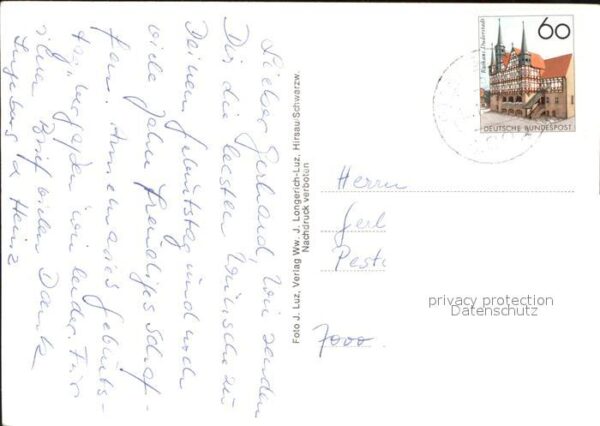 Lieber Gerhard, wir senden
Dir die besten Wünsche zu
Deinem Geburtstag und noch
viele Jahre freudiges Schaf-
fen. Annemaries Geburts-
tag vergaßen wir leider. Für
Euren Brief vielen Dank
Ingeborg u. Heinz
Foto J. Luz, Verlag Ww. J. Longerich-Luz, Hirsau-Schwarzw.
Nachdruck verboten
Rathaus Duderstadt
60
DEUTSCHE BUNDESPOST
Herrn
Gerh
Pest
privacy protection
Datenschutz
7000